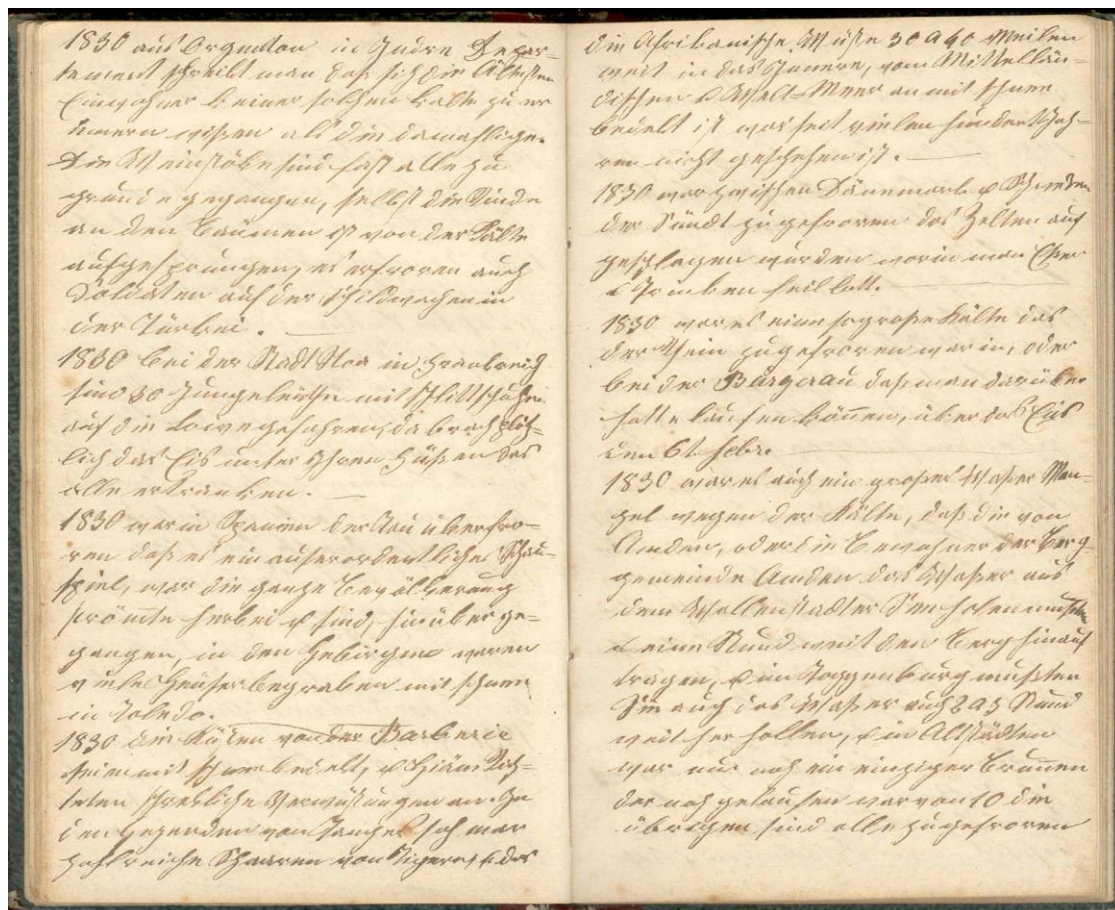 1830 aus Orguelon in Indre Depar-
tement schreibt man daß sich die Ältesten
Einwohner keiner solchen Kälte zu er
innern wissen als die damahlige.
Die Weinstöke sind fast alle zu
grunde gegangen, selbst die Rinde
an den Bäumen ist von der Kälte
aufgesprungen, es erfroren auch
Soldaten auf der Schildwachen in
der Türkei.
1830 bei der Stadt Noa in Frankreich
sind 30 Jungeleüthe mit Schlittschuhen
auf die Loire gefahren, da brach plötz-
lich das Eis unter Ihren Füßen das
alle ertranken.
1830 war in Spanien der Nau überfro-
ren daß es ein außerordentliches Schau-
spiel, war die ganze Bevölkerung
strömte herbei & sind, hinüber ge-
gangen, in den Gebirgen waren
viele Heüser begraben mit Schnee
in Toledo.
1830 die Küsten von der Barberie
seien mit Schnee bedekt, & Stürme rich-
teten schrekliche Verwüstungen an. In
den Gegenden von Tanger sah man
zahlreiche Schaaren von Tigern, & das
die Afrikanische Wüste 30 a 40 Meilen
weit in das Innere, vom Mittellän-
dischen & Welt-Meer an mit Schnee
bedekt ist was seit vielen hundert Jah-
ren nicht geschehen ist.
1830 war zwischen Dänemark & Schweden
der Sundt zugefroren das Zelten auf
geschlagen wurden worin man Eßen
& Trinken feil bott.
1830 war es eine so große Kälte das
der Rhein zugefroren war in, oder
bei der Burgerau daß man darüber
hatte laufen können, über das Eis
den 6t. Febr.
1830 war es auch ein großer Waßer Man-
gel wegen der Kälte, daß die von
Amden, oder die Bewohner der Berg-
gemeinde Amden das Waßer aus
dem Wallenstadter See holen mußten
& eine Stund weit den Berg hinauf
tragen, & im Toggenburg mußten
Sie auch das Waßer auch 2 a 3 Stund
weit her hollen, & in Altstädten
war nur noch ein einziger Brunnen
der noch gelaufen war von 10 die
übrigen sind alle zugefroren